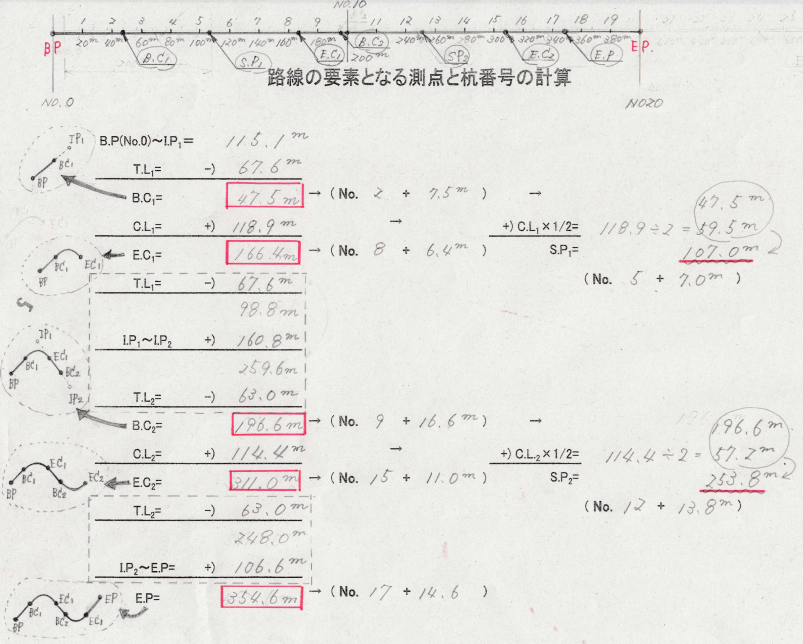 No.10
1 2 3 4 5 6 7 8 9 11 12 13 14 15 16 17 18 19
B.P 20m 40m 60m 80m 100m 120m 140m 160m 180m 200m 240m 260m 280m 300m 320m 360m 380m E.P.
B.C₁ S.P₁ E.C₁ B.C₂ SP₂ E.C₂ E.P
路線の要素となる測点と杭番号の計算
NO.0 NO20
B.P(No.0)～I.P₁= 115.1m
IP₁ BC₁ BP
T.L₁= -) 67.6m
B.C₁= 47.5m → (No. 2 + 7.5m) →
47.5m
C.L₁= +) 118.9m → +) C.L₁×1/2= 118.9÷2 = 59.5m
E.C₁= 166.4m → (No. 8 + 6.4m) S.P₁= 107.0m
BP BC₁ EC₁
T.L₁= -) 67.6m (No. 5 + 7.0m)
98.8m
I.P₁～I.P₂ +) 160.8m
IP₁ BC₁ EC₁ BC₂ BP IP₂
259.6m
T.L₂= -) 63.0m
B.C₂= 196.6m → (No. 9 + 16.6m) →
196.6m
C.L₂= +) 114.4m → +) C.L.₂×1/2= 114.4÷2 = 57.2m
E.C₂= 311.0m → (No. 15 + 11.0m) S.P₂= 253.8m
BP BC₁ EC₁ BC₂ EC₂
T.L₂= -) 63.0m (No. 12 + 13.8m)
248.0m
I.P₂～E.P= +) 106.6m
E.P= 354.6m → (No. 17 + 14.6)
BP BC₁ EC₁ BC₂ EC₂ EP